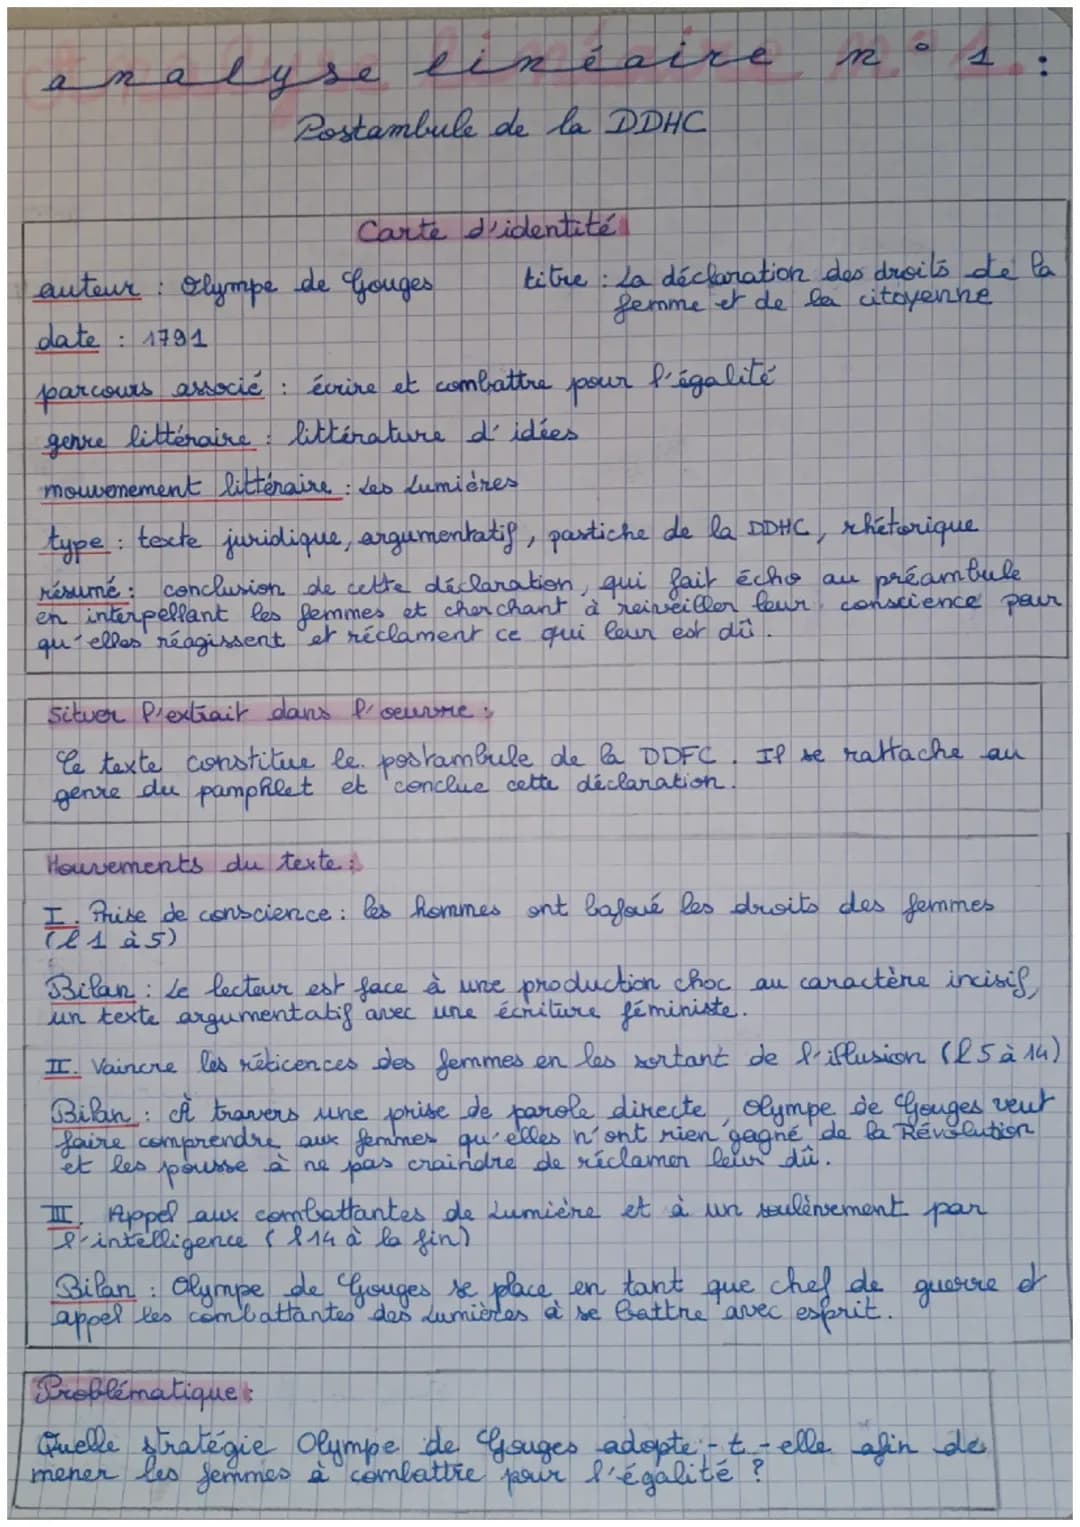 analyse linéaire n° 1 :
Postambule de la DDHC
Carte d'identité
auteur : Olympe de Gouges titre : La déclaration des droits de la
femme et de la citoyenne
date : 1791
parcours associé : écrire et combattre pour l'égalité
genre littéraire : littérature d'idées
mouvenement littéraire : Les Lumières
type : texte juridique, argumentatif, pastiche de la DDHC, rhétorique
résumé : conclusion de cette déclaration, qui fait écho au préambule
en interpellant les femmes et cherchant à reiveiller leur conscience pour
qu'elles réagissent et réclament ce qui leur est dû.
Situer l'extrait dans l'oeuvre :
Le texte constitue le postambule de la DDFC. Il se rattache au
genre du pamphlet et conclue cette déclaration.
Mouvements du texte :
I. Prise de conscience : les hommes ont bafoué les droits des femmes
(l 1 à 5)
Bilan : Le lecteur est face à une production choc au caractère incisif,
un texte argumentatif avec une écriture féministe.
II. Vaincre les réticences des femmes en les sortant de l'illusion (l 5 à 14)
Bilan : À travers une prise de parole directe, Olympe de Gouges veut
faire comprendre aux femmes qu'elles n'ont rien gagné de la Révolution
et les pousse à ne pas craindre de réclamer leur dû.
III. Appel aux combattantes de Lumière et à un soulèvement par
l'intelligence (l 14 à la fin)
Bilan : Olympe de Gouges se place en tant que chef de guerre et
appel les combattantes des Lumières à se battre avec esprit.
Problématique :
Quelle stratégie Olympe de Gouges adopte-t-elle afin de
mener les femmes à combattre pour l'égalité ?